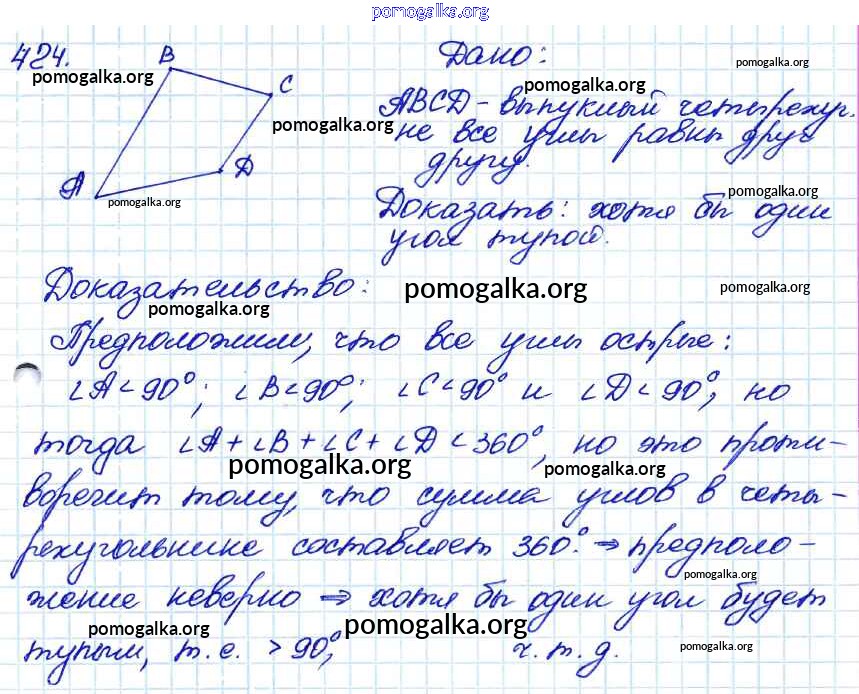 pomogalka.org
424.
B
C
A
D
Дано:
ABCD - выпуклый четырехуг.
не все углы равны друг
другу.
Доказать: хотя бы один
угол тупой.
Доказательство:
Предположим, что все углы острые:
∠A < 90°; ∠B < 90°; ∠C < 90° и ∠D < 90°, но
тогда ∠A + ∠B + ∠C + ∠D < 360°, но это проти-
воречит тому, что сумма углов в четы-
рехугольнике составляет 360°. ⇒ предполо-
жение неверно ⇒ хотя бы один угол будет
тупым, т.е. > 90°, ч.т.д.
pomogalka.org
pomogalka.org
pomogalka.org
pomogalka.org
pomogalka.org
pomogalka.org
pomogalka.org
pomogalka.org
pomogalka.org
pomogalka.org
pomogalka.org
pomogalka.org
pomogalka.org
pomogalka.org
pomogalka.org
pomogalka.org